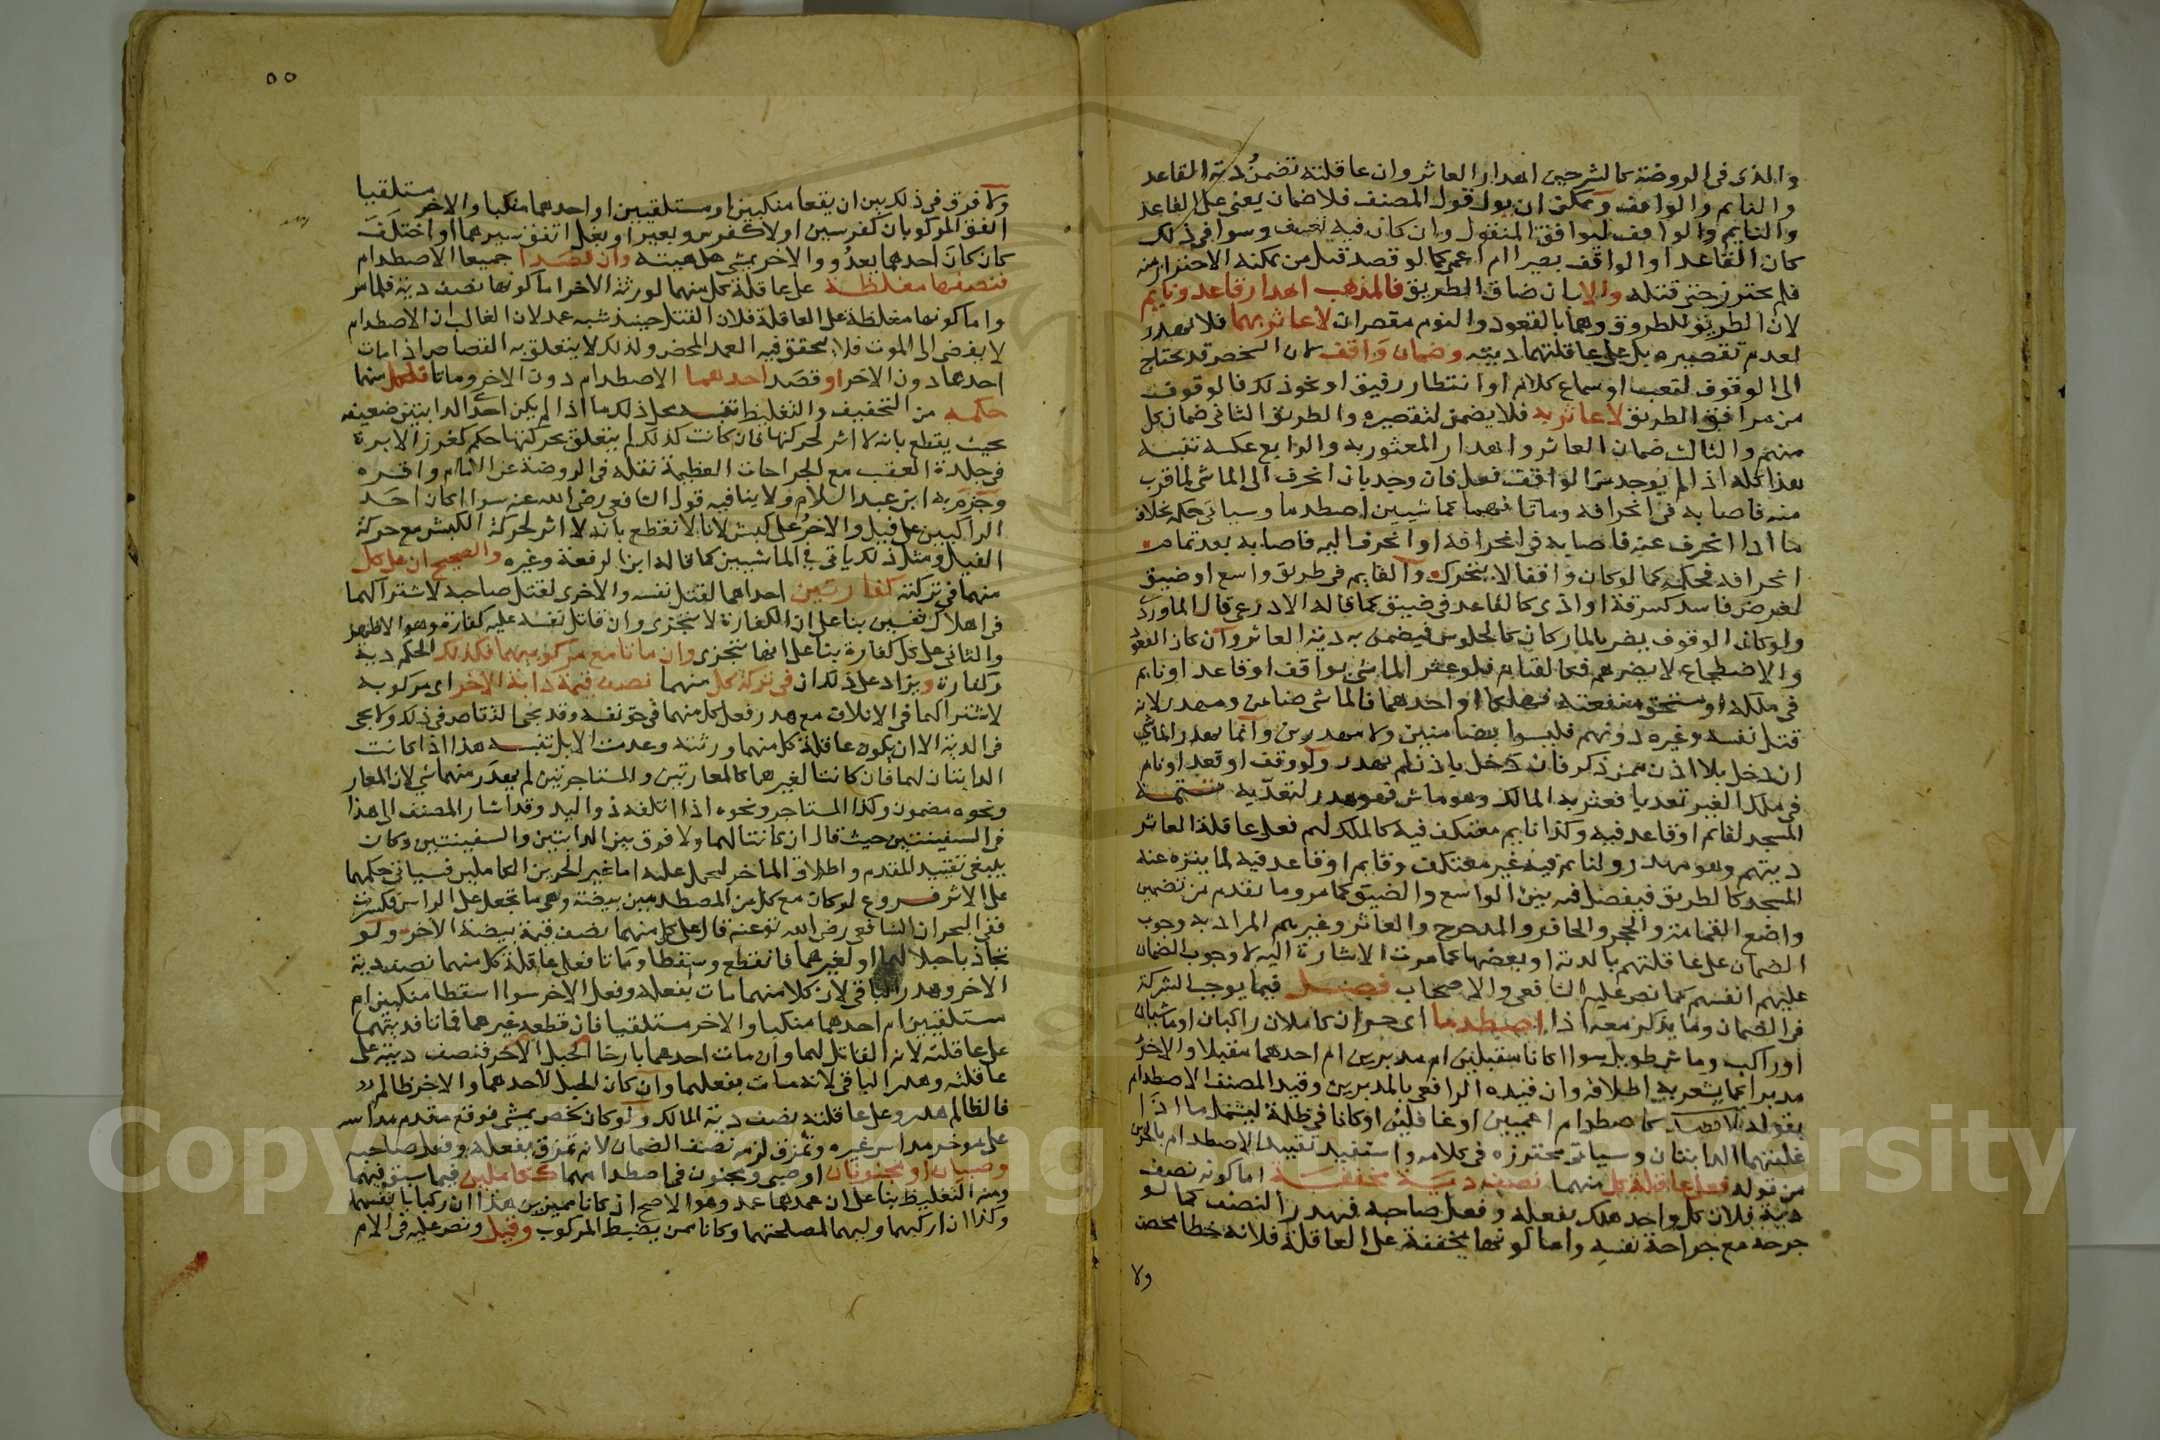 والذى فى الروضة كالشرحين اهدار العاثر وان عاقلته تضمن دية القاعد
والنايم والواقف ويمكن ان يول قول المصنف فلا ضمان يعنى على القاعد
والنايم والواقف ليوافق المنقول وان كان فيه تعسف وسوا فى ذلك
كان القاعد او الواقف بصيرا ام اعمى كما لو قصد قتل من يمكنه الاحتراز منه
فلم يحترز حتى قتله والا بان ضاق الطريق فالمذهب اهدار قاعد ونايم
لان الطريق للطروق وهما بالقعود والنوم مقصران لا عاثر بهما فلا يهدر
لعدم تقصيره بل على عاقلتهما ديته وضمان واقف لان الشخص قد يحتاج
الى الوقوف لتعب او سماع كلام او انتظار رفيق او نحو ذلك فالوقوف
من مرافق الطريق لا عاثر به فلا يضمن لتقصيره والطريق الثانى ضمان كل
منهم والثالث ضمان العاثر واهدار المعثور به والرابع عكسه تنبيه
هذا كله اذا لم يوجد من الواقف فعل فان وجد بان انحرف الى الماشى لما قرب
منه فاصابه فى انحرافه وماتا فهما كماشيين اصطدما وسياتى حكمه بخلاف
ما اذا انحرف عنه فاصابه فى انحرافه او انحرف اليه فاصابه بعد تمام
انحرافه فحكمه كما لو كان واقفا لا يتحرك والقايم فى طريق واسع او ضيق
لغرض فاسد كسرقة او اذى كالقاعد فى ضيق كما قاله الاذرعى قال الماوردى
ولو كان الوقوف يضر بالمار كان كالجلوس فيضمن به دية العاثر وان كان القعود
والاضطجاع لا يضرهم فكالقيام فلو عثر الماشى بواقف او قاعد او نايم
فى ملكه او مستحق منفعته فهلكا او احدهما فالماشى ضامن ومهدر لانه
قتل نفسه وغيره دونهم فليسوا بضامنين ولا مهدرين وانما يهدر الماشى
ان دخل بلا اذن ممن ذكر فان دخل باذن لم يهدر ولو وقف او قعد او نام
فى ملك الغير تعديا فعثر به المالك وهو ماش فهو هدر لتعديه تتمة
المسجد لقائم او قاعد فيه وكذا نايم معتكف فيه كالملك لهم فعلى عاقلة العاثر
ديتهم وهو مهدر ولنايم فيه غير معتكف وقايم او قاعد فيه لما ينزه عنه
المسجد كالطريق فيفصل فيه بين الواسع والضيق كما مر وما تقدم من تضمين
واضع القمامة والحجر والحافر والمدحرج والعاثر وغيرهم المراد به وجوب
الضمان على عاقلتهم بالدية او بعضها كما مرت الاشارة اليه لا وجوب الضمان
عليهم انفسهم كما نص عليه الشافعى والاصحاب فصل فيما يوجب الشركة
فى الضمان وما يذكر معه اذا اصطدما اى حران كاملان راكبان او ماشيان
او راكب وماش طويل سوا اكانا مقبلين ام مدبرين ام احدهما مقبلا والاخر
مدبرا كما يشعر به اطلاقه وان قيده الرافعى بالمدبرين وقيد المصنف الاصطدام
بقوله بلا قصد كاصطدام اعميين او غافلين او كانا فى ظلمة ليشمل ما اذا
غلبتهما الدابتان وسياتى محترزه فى كلامه واستفيد تقييد الاصطدام بالحرين
من قوله فعلى عاقلة كل منهما نصف دية مخففة اما كونه نصف
دية فلان كل واحد هلك بفعله وفعل صاحبه فهدر النصف كما لو
جرحه مع جراحة نفسه واما كونها مخففة على العاقلة فلانه خطا محض
ولا
٥٥
ولا فرق فى ذلك بين ان يقعا منكبين او مستلقيين او احدهما منكبا والاخر مستلقيا
اتفق المركوبان كفرسين او لا كفرس وبعير او بغل اتفق سيرهما او اختلف
كان كان احدهما يعدو والاخر يمشى على هينته وان قصدا جميعا الاصطدام
فنصفها مغلظة على عاقلة كل منهما لورثة الاخر اما كونها نصف دية فلما مر
واما كونها مغلظة على العاقلة فلان القتل حينئذ شبه عمد لان الغالب ان الاصطدام
لا يفضى الى الموت فلا يتحقق فيه العمد المحض ولذلك لا يتعلق به القصاص اذا مات
احدهما دون الاخر او قصد احدهما الاصطدام دون الاخر وماتا فلكل منهما
حكمه من التخفيف والتغليظ تنبيه محل ذلك ما اذا لم يكن احدى الدابتين ضعيفة
بحيث يقطع بانه لا اثر لحركتها فان كانت كذلك لم يتعلق بحركتها حكم كغرز الابرة
فى جلدة العقب مع الجراحات العظيمة نقله فى الروضة عن الامام واقره
وجزم به ابن عبد السلام ولا ينافيه قول الشافعى رضى الله عنه سوا اكان احد
الراكبين على فيل والاخر على كبش لانا لا نقطع بانه لا اثر لحركة الكبش مع حركة
الفيل ومثل ذلك ياتى فى الماشيين كما قاله ابن الرفعة وغيره والصحيح ان على كل
منهما فى تركته كفارتين احداهما لقتل نفسه والاخرى لقتل صاحبه لاشتراكهما
فى اهلاك نفسين بنا على ان الكفارة لا تتجزى وان قاتل نفسه عليه كفارة وهو الاظهر
والثانى على كل كفارة بنا على انها تتجزى وان ماتا مع مركوبيهما فكذلك الحكم دية
وكفارة ويزاد على ذلك ان فى تركة كل منهما نصف قيمة دابة الاخر اى مركوبه
لاشتراكهما فى الاتلاف مع هدر فعل كل منهما فى حق نفسه وقد يجى التقاص فى ذلك ولا يجى
فى الدية الا ان يكون عاقلة كل منهما ورثته وعدمت الابل تنبيه هذا اذا كانت
الدابتان لهما فان كانتا لغيرهما كالمعارتين والمستاجرتين لم يهدر منهما شي لان المعار
ونحوه مضمون وكذا المستاجر ونحوه اذا اتلفه ذو اليد وقد اشار المصنف الى هذا
فى السفينتين حيث قال ان كانتا لهما ولا فرق بين الدابتين والسفينتين وكان
ينبغى تقييد المقدم واطلاق الماخر ليحمل عليه اما غير الحرين الكاملين فسياتى حكمهما
على الاثر فروع لو كان مع كل من المصطدمين بيضة وهى ما تجعل على الراس فكسرت
ففى البحر ان الشافعى رضى الله تع عنه قال على كل منهما نصف قيمة بيضة الاخر ولو
تجاذبا حبلا لهما او لغيرهما فانقطع وسقطا وماتا فعلى عاقلة كل منهما نصف دية
الاخر وهدر الباقى لان كلا منهما مات بفعله وفعل الاخر سوا اسقطا منكبين ام
مستلقيين ام احدهما منكبا والاخر مستلقيا فان قطعه غيرهما فماتا فديتهما
على عاقلته لانه القاتل لهما وان مات احدهما بارخا الحبل الاخر فنصف ديته على
عاقلته وهدر الباقى لانه مات بفعلهما وان كان الحبل لاحدهما والاخر ظالم
فالظالم هدر وعلى عاقلته نصف دية المالك ولو كان شخص يمشى فوقع مقدم مداسه
على موخر مداس غيره وتمزق لزمه نصف الضمان لانه تمزق بفعله وفعل صاحبه
وصبيان او مجنونان او صبى ومجنون فى اصطدامهما ككاملين فيما سبق فيهما
ومنه التغليظ بنا على ان عمدهما عمد وهو الاصح ان كانا مميزين هذا ان ركبا بانفسهما
وكذا ان اركبهما وليهما لمصلحتهما وكانا ممن يضبط المركوب وقيل ونص عليه فى الام